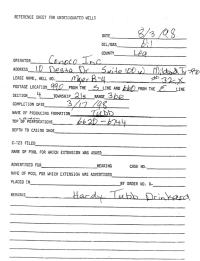 REFERENCE SHEET FOR UNDESIGNATED WELLS
DATE 8/3/98
OIL/GAS Oil
COUNTY Lea
OPERATOR Conoco Inc
ADDRESS 10 Desta Dr Suite 100W Midland Tx
LEASE NAME, WELL NO. Meyer B-4 # 32-X
FOOTAGE LOCATION 990 FROM THE S LINE AND 660 FROM THE E LINE
SECTION 4 TOWNSHIP 21s RANGE 36e
COMPLETION DATE 3/17/98
NAME OF PRODUCING FORMATION Tubb
PERFORATIONS 6620-6744
DEPTH TO CASING SHOE
C-123 FILED
NAME OF POOL FOR WHICH EXTENSION WAS ASKED
ADVERTISED FOR HEARING CASE NO.
NAME OF POOL FOR WHICH EXTENSION WAS ADVERTISED
PLACED IN BY ORDER NO. R-
REMARKS Hardy Tubb Drinkard